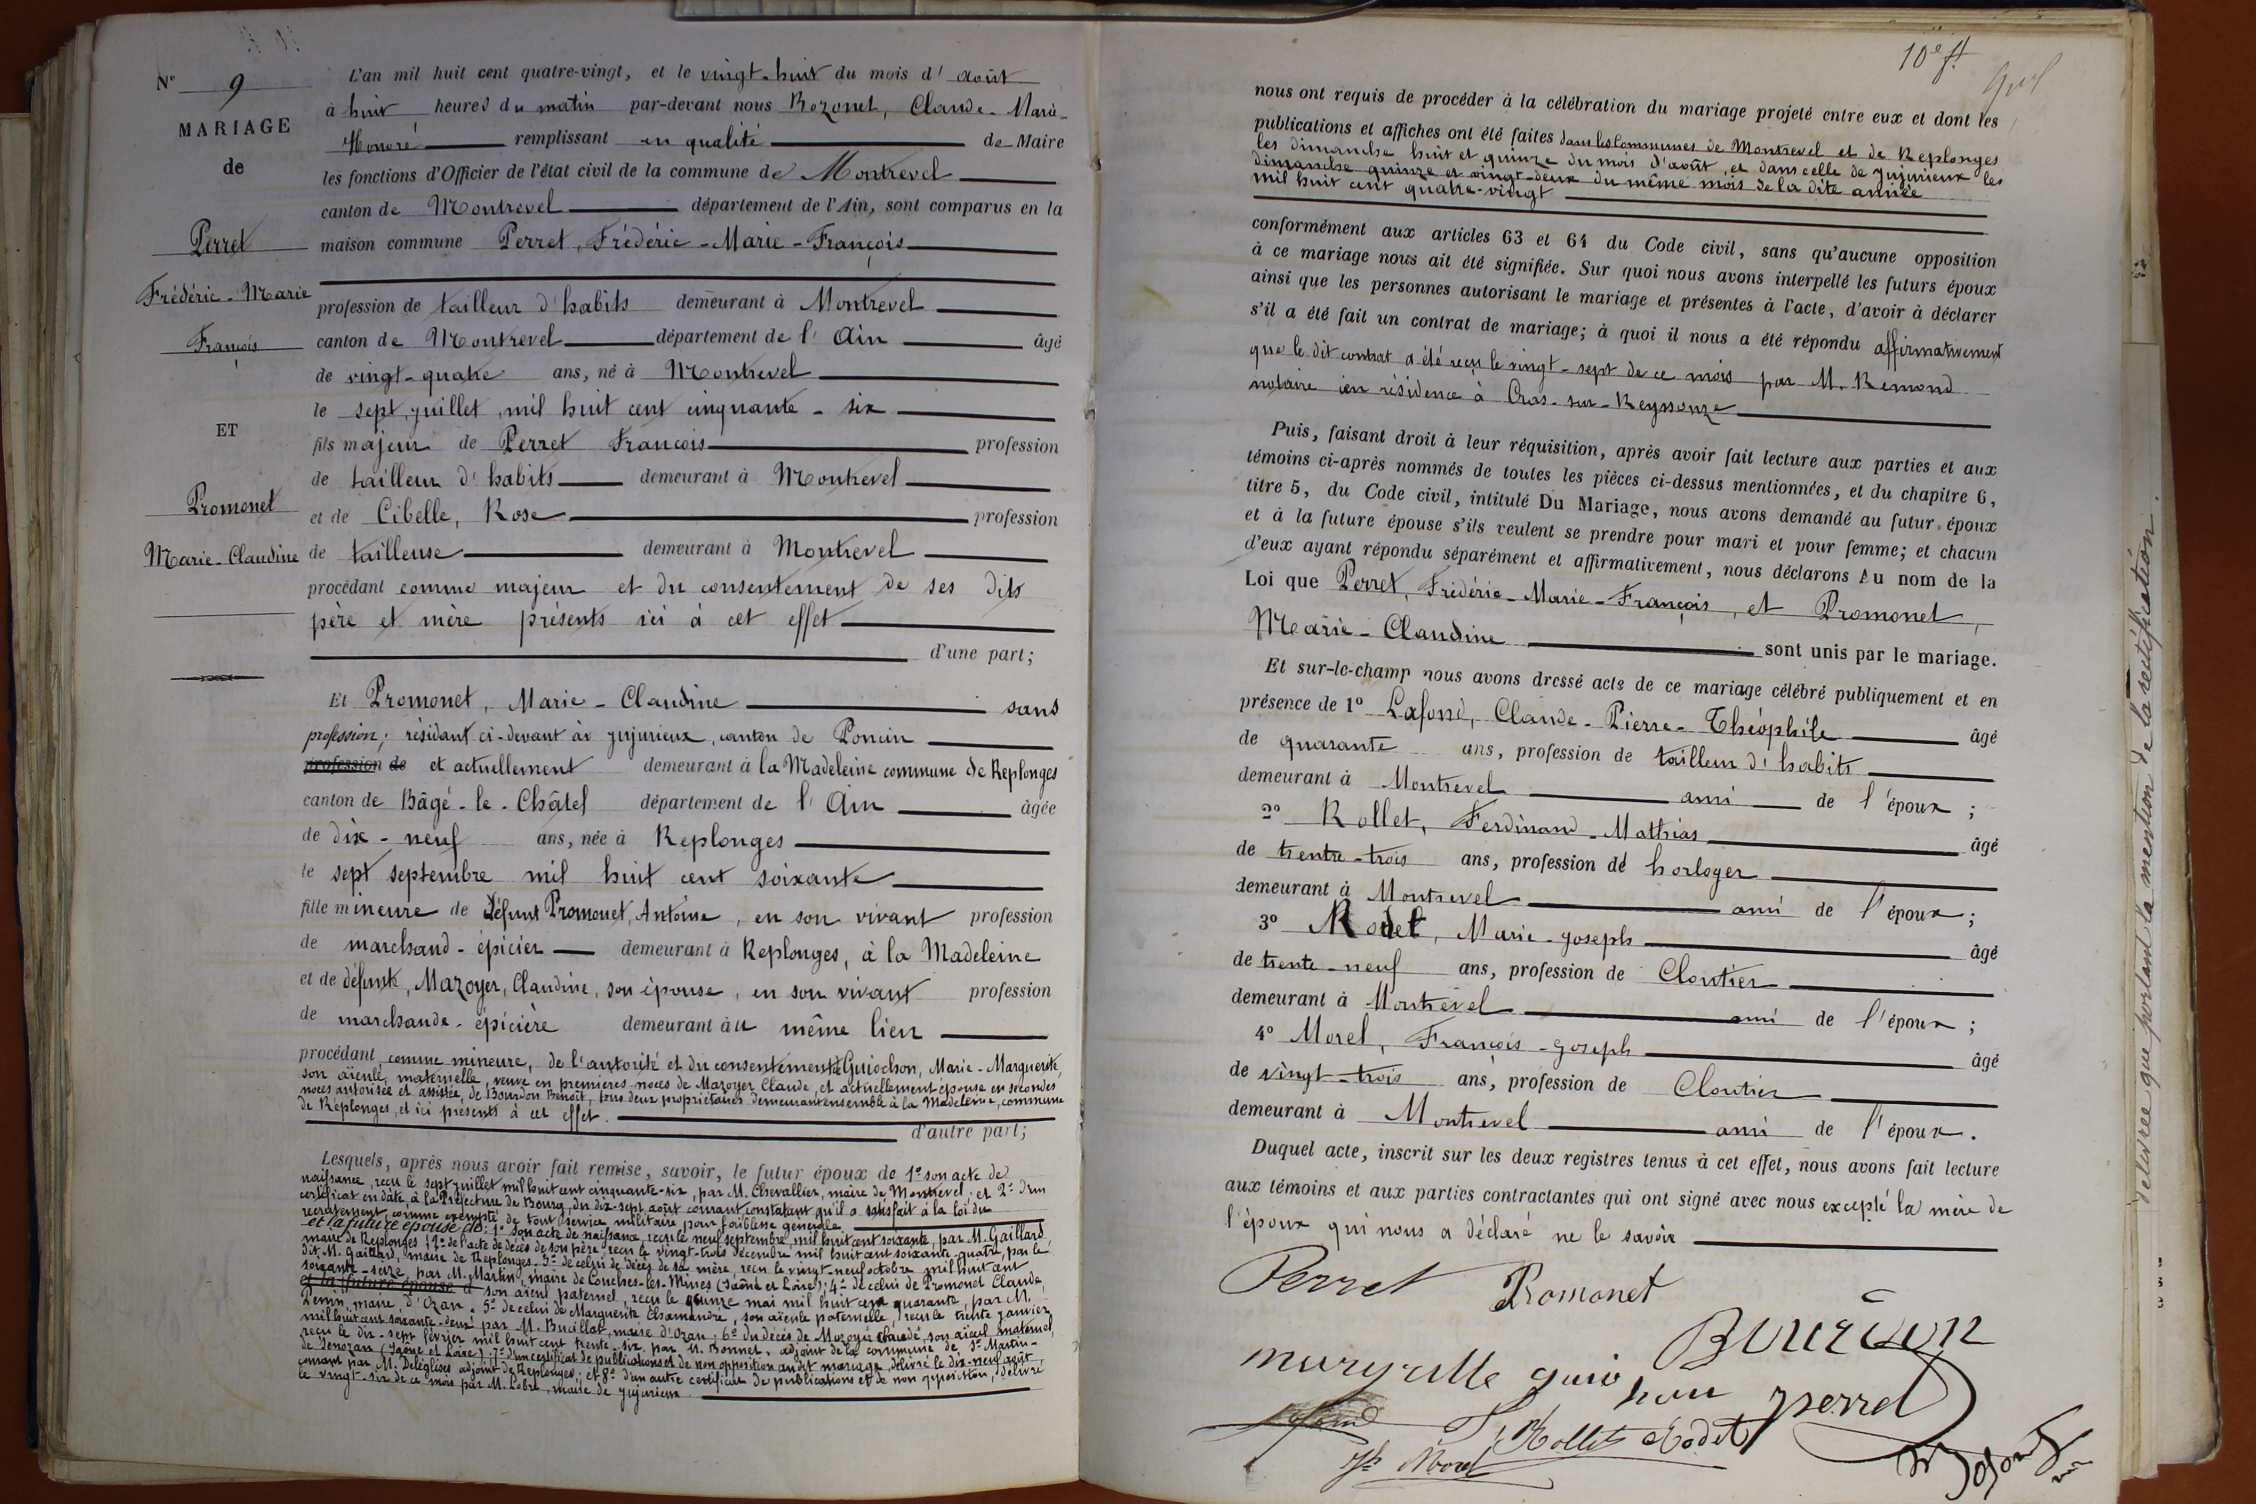 N° 9
MARIAGE
de
Perret
Frédéric-Marie
François
ET
Promonet
Marie-Claudine
L'an mil huit cent quatre-vingt, et le vingt-huit du mois d'août
à huit heures du matin par-devant nous Bozonet, Claude-Marie-
Honoré remplissant en qualité de Maire
les fonctions d'Officier de l'état civil de la commune de Montrevel
canton de Montrevel département de l'Ain, sont comparus en la
maison commune Perret, Frédéric-Marie-François
profession de tailleur d'habits demeurant à Montrevel
canton de Montrevel département de l'Ain âgé
de vingt-quatre ans, né à Montrevel
le sept juillet mil huit cent cinquante-six
fils majeur de Perret François profession
de tailleur d'habits demeurant à Montrevel
et de Cibelle, Rose profession
de tailleuse demeurant à Montrevel
procédant comme majeur et du consentement de ses dits
père et mère présents ici à cet effet
d'une part;
Et Promonet, Marie-Claudine sans
profession; résidant ci-devant à Jujurieux, canton de Poncin
profession de et actuellement demeurant à la Madeleine commune de Replonges
canton de Bâgé-le-Châtel département de l'Ain âgée
de dix-neuf ans, née à Replonges
le sept septembre mil huit cent soixante
fille mineure de défunt Promonet, Antoine, en son vivant profession
de marchand-épicier demeurant à Replonges, à la Madeleine
et de défunte, Mazoyer, Claudine, son épouse, en son vivant profession
de marchande-épicière demeurant au même lieu
procédant comme mineure, de l'autorité et du consentement de Guiochon, Marie-Marguerite,
son aïeule maternelle, veuve en premières noces de Mazoyer Claude, et actuellement épouse en secondes
noces autorisée et assistée, de Bourdon Benoît, tous deux propriétaires demeurant ensemble à la Madeleine, commune
de Replonges, et ici présents à cet effet.
d'autre part;
Lesquels, après nous avoir fait remise, savoir, le futur époux de 1° son acte de
naissance, reçu le sept juillet mil huit cent cinquante-six, par M. Chevallier, maire de Montrevel; et 2° d'un
certificat en date, à la Préfecture de Bourg, du dix-sept août courant constatant qu'il a satisfait à la loi du
recrutement comme exempté de tout service militaire pour faiblesse générale
et la future épouse de: 1° son acte de naissance, reçu le neuf septembre mil huit cent soixante, par M. Gaillard
maire de Replonges; 2° de l'acte de décès de son père reçu le vingt-trois décembre mil huit cent soixante-quatre, par le
dit M. Gaillard, maire de Replonges. 3° de celui de décès de sa mère, reçu le vingt-neuf octobre mil huit cent
soixante-seize, par M. Martin, maire de Couches-les-Mines (Saône et Loire); 4° de celui de Promonet Claude,
et la future épouse son aïeul paternel, reçu le quinze mai mil huit cent quarante, par M.
maire, d'Ozan. 5° de celui de Marguerite Chamandre, son aïeule paternelle, reçu le trente janvier
mil huit cent soixante-deux par M. Bucillat, maire d'Ozan; 6° du décès de Mazoyer Claude, son aïeul maternel,
reçu le dix-sept février mil huit cent trente-six par M. Bonnet, adjoint de la commune de St Martin-
de Senozan (Saône et Loire). 7° d'un certificat de publications et de non opposition au dit mariage, délivré le dix-neuf août
courant par M. Deléglises adjoint de Replonges; et 8° d'un autre certificat de publications et de non opposition, délivré
le vingt-six de ce mois par M. maire de Jujurieux.
10e ft.
nous ont requis de procéder à la célébration du mariage projeté entre eux et dont les
publications et affiches ont été faites dans les communes de Montrevel et de Replonges
les dimanche huit et quinze du mois d'août, et dans celle de Jujurieux les
dimanche quinze et vingt-deux du même mois de la dite année
mil huit cent quatre-vingt
conformément aux articles 63 et 64 du Code civil, sans qu'aucune opposition
à ce mariage nous ait été signifiée. Sur quoi nous avons interpellé les futurs époux
ainsi que les personnes autorisant le mariage et présentes à l'acte, d'avoir à déclarer
s'il a été fait un contrat de mariage; à quoi il nous a été répondu affirmativement
que le dit contrat a été reçu le vingt-sept de ce mois par M. Remond
notaire en résidence à Cras-sur-Reyssouze
Puis, faisant droit à leur réquisition, après avoir fait lecture aux parties et aux
témoins ci-après nommés de toutes les pièces ci-dessus mentionnées, et du chapitre 6,
titre 5, du Code civil, intitulé Du Mariage, nous avons demandé au futur époux
et à la future épouse s'ils veulent se prendre pour mari et pour femme; et chacun
d'eux ayant répondu séparément et affirmativement, nous déclarons Au nom de la
Loi que Perret, Frédéric-Marie-François, et Promonet,
Marie-Claudine sont unis par le mariage.
Et sur-le-champ nous avons dressé acte de ce mariage célébré publiquement et en
présence de 1° Lafond, Claude-Pierre-Théophile âgé
de quarante ans, profession de tailleur d'habits
demeurant à Montrevel ami de l'époux;
2° Rollet, Ferdinand-Mathias âgé
de trente-trois ans, profession de horloger
demeurant à Montrevel ami de l'époux;
3° Rodet, Marie-Joseph âgé
de trente-neuf ans, profession de Cloutier
demeurant à Montrevel ami de l'époux;
4° Morel, François-Joseph âgé
de vingt-trois ans, profession de Cloutier
demeurant à Montrevel ami de l'époux.
Duquel acte, inscrit sur les deux registres tenus à cet effet, nous avons fait lecture
aux témoins et aux parties contractantes qui ont signé avec nous excepté la mère de
l'époux qui nous a déclaré ne le savoir
Perret Promonet
Bourdon
perret
Lafond
Rollet Rodet
Morel
délivrée que portant la mention de la rectification.